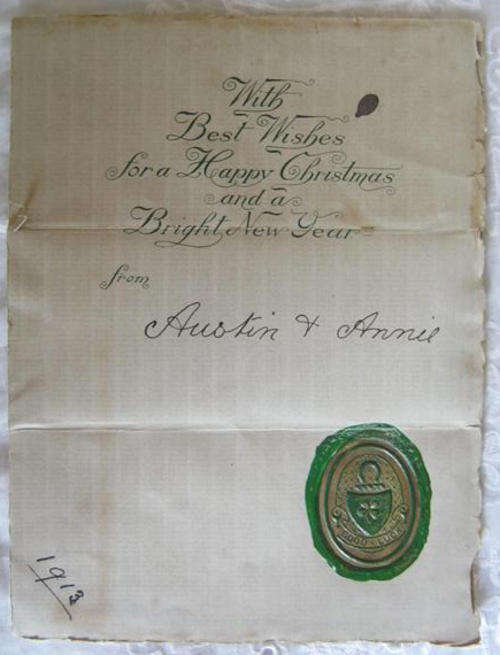 With
Best Wishes
for a Happy Christmas
and a
Bright New Year
from
Austin & Annie
GOOD LUCK
1913